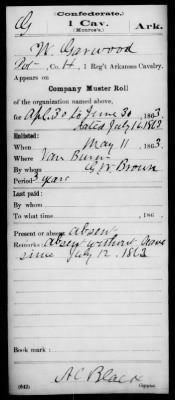 (Confederate.)
G 1 Cav. Ark.
(Monroe's.)
W. Garwood
Pvt, Co. H, 1 Reg't Arkansas Cavalry.
Appears on
Company Muster Roll
of the organization named above,
for Apl. 30 to June 30, 1863.
dated July 16 1863
Enlisted:
When May 11, 1863.
Where Van Buren
By whom Brown
Period 3 years
Last paid:
By whom
To what time , 186 .
Present or absent absent
Remarks: Absent without leave
since July 12, 1863
Book mark:
(642) A C Black
Copyist.